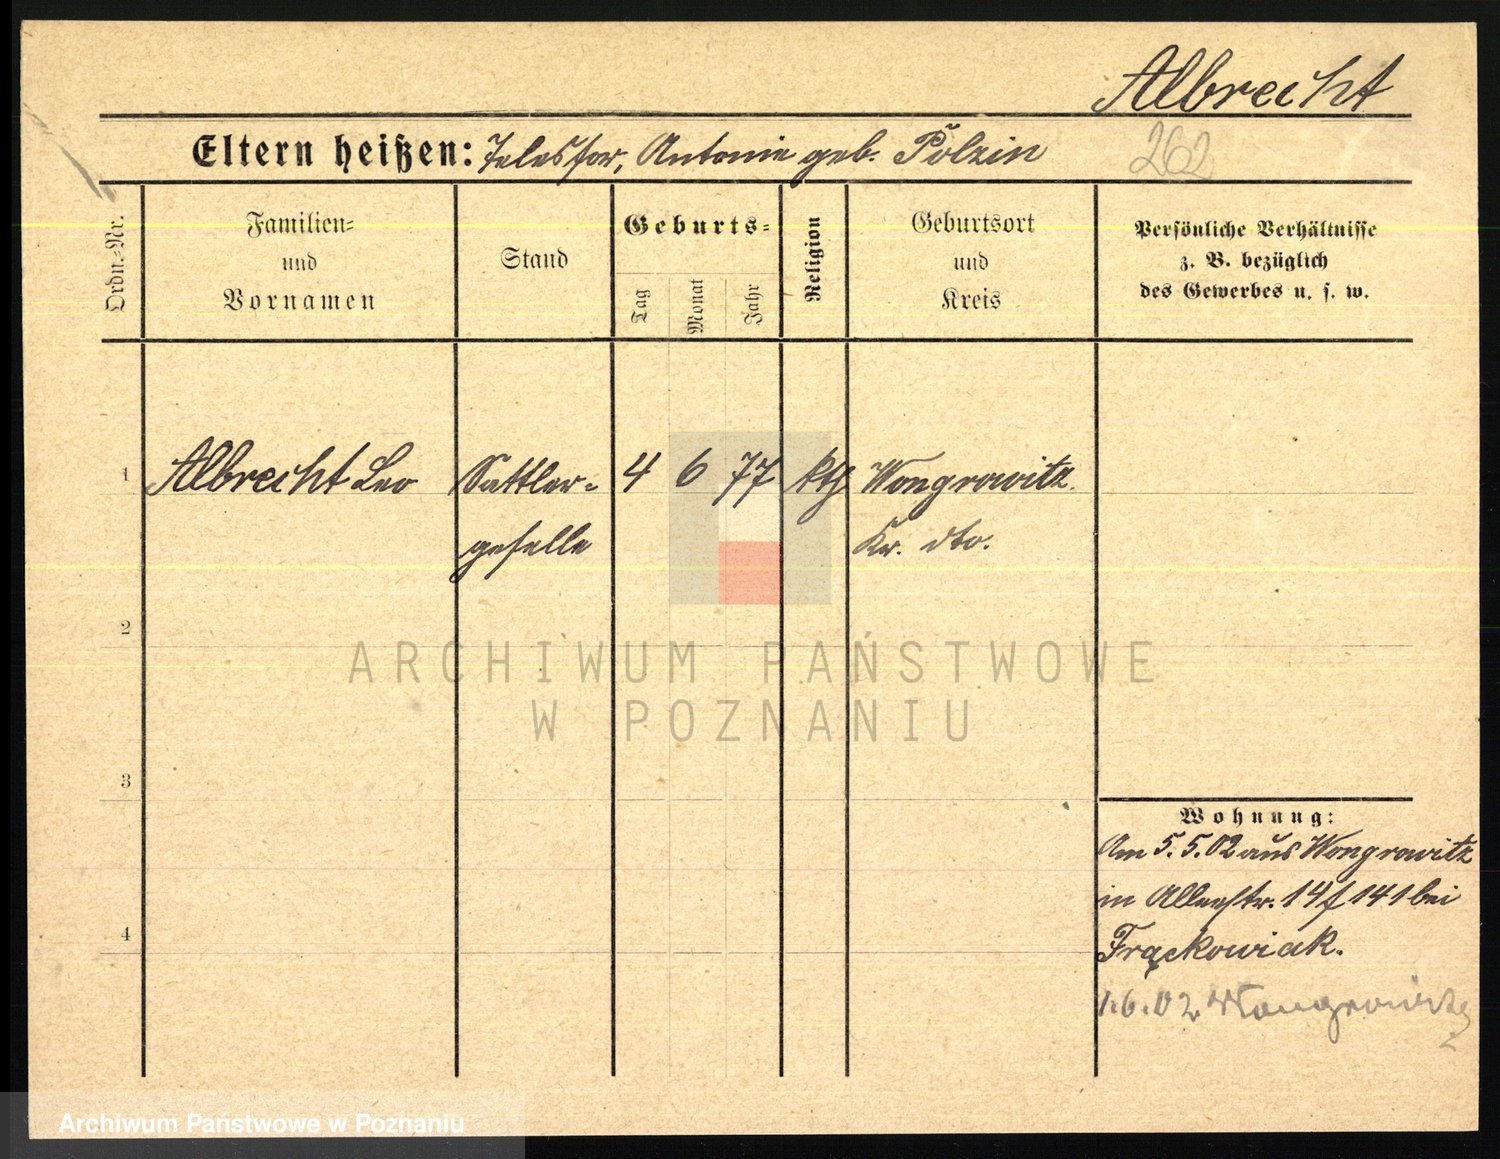 Albrecht
Eltern heißen: Telesfor, Antonie geb. Polzin
262
Ordn.-Nr.
Familien-
und
Vornamen
Stand
Geburts-
Tag
Monat
Jahr
Religion
Geburtsort
und
Kreis
Persönliche Verhältnisse
z. B. bezüglich
des Gewerbes u. s. w.
1 Albrecht Leo Sattler- 4 6 77 kth Wongrowitz
geselle Kr. dto.
2
ARCHIWUM PAŃSTWOWE
W POZNANIU
3
Wohnung:
Am 5.5.02 aus Wongrowitz
in Alleestr. 14 f 141 bei
4
Frąckowiak.
1.6.02 Wongrowitz
Archiwum Państwowe w Poznaniu